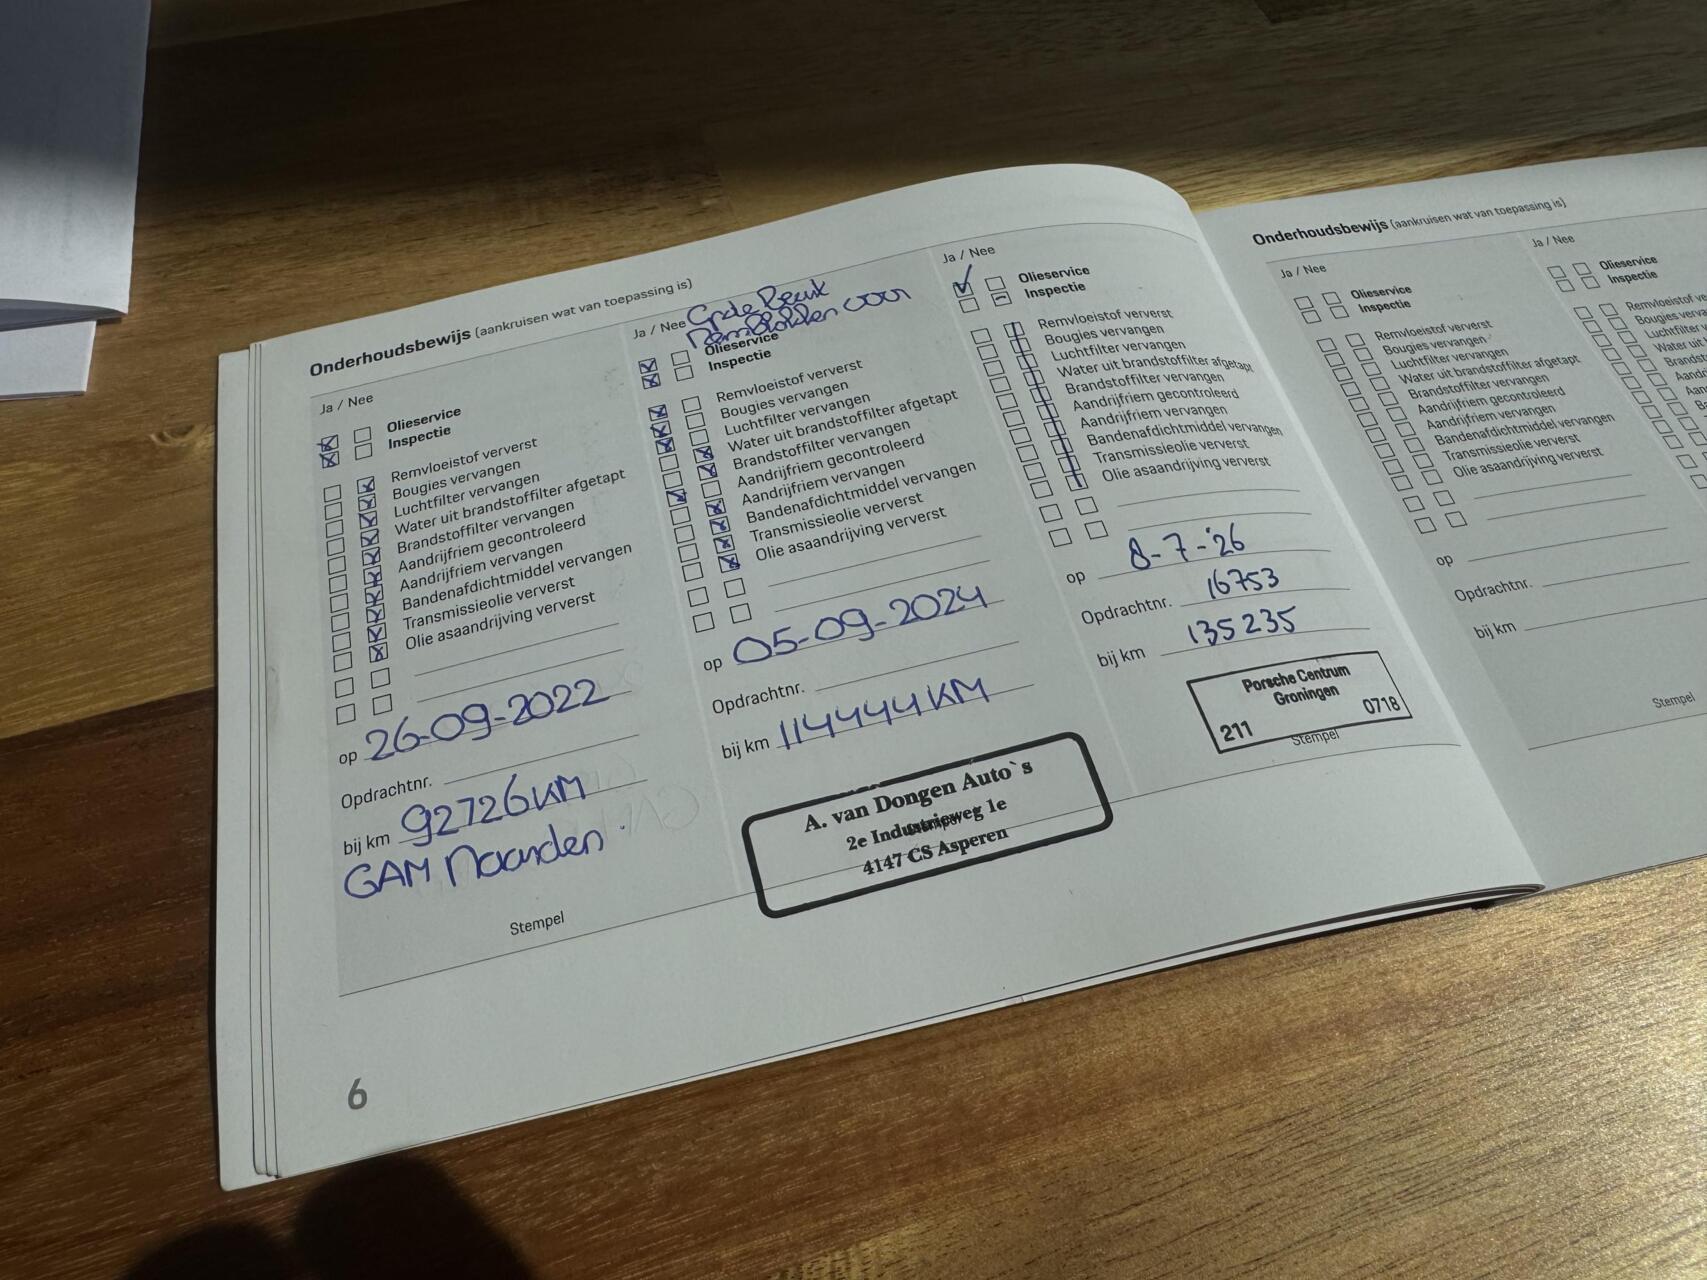 Onderhoudsbewijs (aankruisen wat van toepassing is)
Ja / Nee
Olieservice
Inspectie
Remvloeistof ververst
Bougies vervangen
Luchtfilter vervangen
Water uit brandstoffilter afgetapt
Brandstoffilter vervangen
Aandrijfriem gecontroleerd
Aandrijfriem vervangen
Bandenafdichtmiddel vervangen
Transmissieolie ververst
Olie asaandrijving ververst
op 26-09-2022
Opdrachtnr.
bij km 92726 KM
GAM Naarden.
Stempel
6
Ja / Nee Grote Beurt
Remblokken voor
Olieservice
Inspectie
Remvloeistof ververst
Bougies vervangen
Luchtfilter vervangen
Water uit brandstoffilter afgetapt
Brandstoffilter vervangen
Aandrijfriem gecontroleerd
Aandrijfriem vervangen
Bandenafdichtmiddel vervangen
Transmissieolie ververst
Olie asaandrijving ververst
op 05-09-2024
Opdrachtnr.
bij km 114444 KM
A. van Dongen Auto`s
2e Industrieweg 1e
4147 CS Asperen
Ja / Nee
Olieservice
Inspectie
Remvloeistof ververst
Bougies vervangen
Luchtfilter vervangen
Water uit brandstoffilter afgetapt
Brandstoffilter vervangen
Aandrijfriem gecontroleerd
Aandrijfriem vervangen
Bandenafdichtmiddel vervangen
Transmissieolie ververst
Olie asaandrijving ververst
op 8-7-'26
Opdrachtnr. 16753
bij km 135235
Porsche Centrum
Groningen
211 0718
Stempel
Onderhoudsbewijs (aankruisen wat van toepassing is)
Ja / Nee
Olieservice
Inspectie
Remvloeistof ververst
Bougies vervangen
Luchtfilter vervangen
Water uit brandstoffilter afgetapt
Brandstoffilter vervangen
Aandrijfriem gecontroleerd
Aandrijfriem vervangen
Bandenafdichtmiddel vervangen
Transmissieolie ververst
Olie asaandrijving ververst
op
Opdrachtnr.
bij km
Stempel
Ja / Nee
Olieservice
Inspectie
Remvloeistof
Bougies
Luchtfilter
Water uit